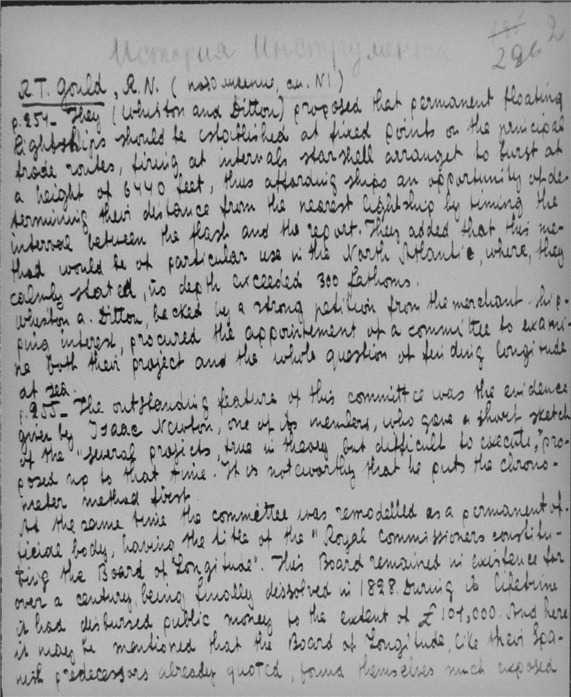 История Инструмента
296 2
R T. Gould, R.N. ( см. N1)
p.254 - They (Whiston and Ditton) proposed that permanent floating
lightships should be established at fixed points on the principal
trade routes, firing at intervals starshell arranget to burst at
a height of 6440 feet, thus affording ships an opportunity of de-
termining their distance from the nearest lightship by timing the
interval between the flash and the report. They added that this me-
thod would be of particular use in the North Atlantic, where, they
calmly stated, no depth exceeded 300 fathoms.
Whiston a. Ditton, backed by a strong petition from the merchant ship-
ping interest, procured the appointement of a committee to exami-
ne both their project and the whole question of finding longitude
at sea.
p.255 - The outstanding feature of this committee was the evidence
given by Isaac Newton, one of its members, who gave a short sketch
of the "several projects, true in theory but difficult to execute," pro-
posed up to that time. It is noteworthy that he puts the chrono-
meter method first.
At the same time the committee was remodelled as a permanent of-
ficial body, having the title of the "Royal Commissioners constitu-
ting the Board of Longitude". This Board remained in existence for
over a century, being finally dissolved in 1828. During its lifetime
it had disbursed public money to the extent of £ 101,000. And here
it may be mentioned that the Board of Longitude, like their Spa-
nish predecessors already quoted, found themselves much exposed